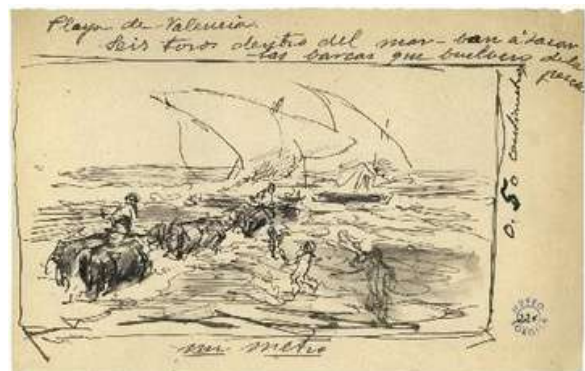 Playa de Valencia.
Seis toros dentro del mar - ban á sacar
las barcas que buelven de la
pesca
0.50 centimetros
un metro
MUSEO
SOROLLA